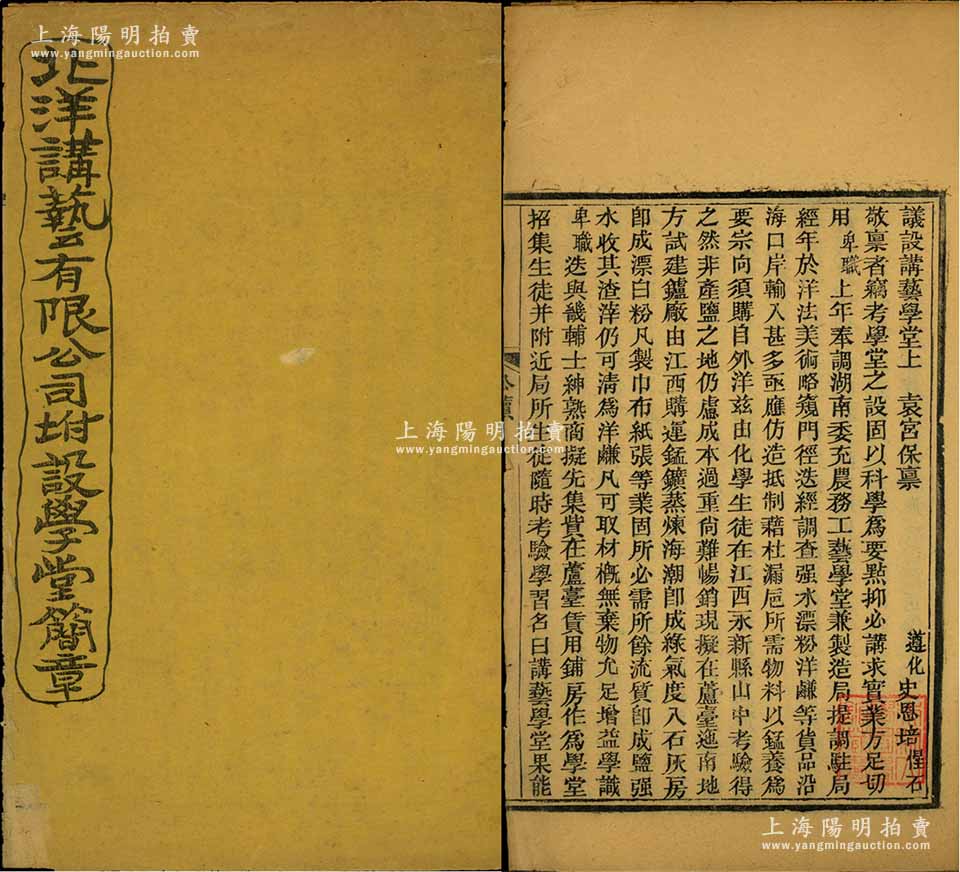 上海陽明拍賣
www.yangmingauction.com
北洋講藝有限公司坿設學堂簡章
上海陽明拍賣
www.yangmingauction.com
議設講藝學堂上　袁宮保稟
遵化史恩培惺石
敬稟者竊考學堂之設固以科學爲要點抑必講求實業方足切
用　卑職上年奉調湖南委充農務工藝學堂兼製造局提調駐局
經年於洋法美術略窺門徑迭經調查强水漂粉洋鹻等貨品沿
海口岸輸入甚多亟應仿造抵制藉杜漏巵所需物料以錳養爲
要宗向須購自外洋兹由化學生徒在江西永新縣山中考驗得
之然非產鹽之地仍慮成本過重尙難暢銷現擬在蘆臺迤南地
方試建鑪廠由江西購運錳鑛蒸煉海潮卽成綠氣度入石灰房
卽成漂白粉凡製巾布紙張等業固所必需所餘流質卽成鹽强
水收其渣滓仍可清爲洋鹻凡可取材概無棄物尤足增益學識
卑職迭與畿輔士紳熟商擬先集貲在蘆臺賃用鋪房作爲學堂
招集生徒并附近局所生徒隨時考驗學習名曰講藝學堂果能
上海陽明拍賣
www.yangmingauction.com
上海陽明拍賣
www.yangmingauction.com